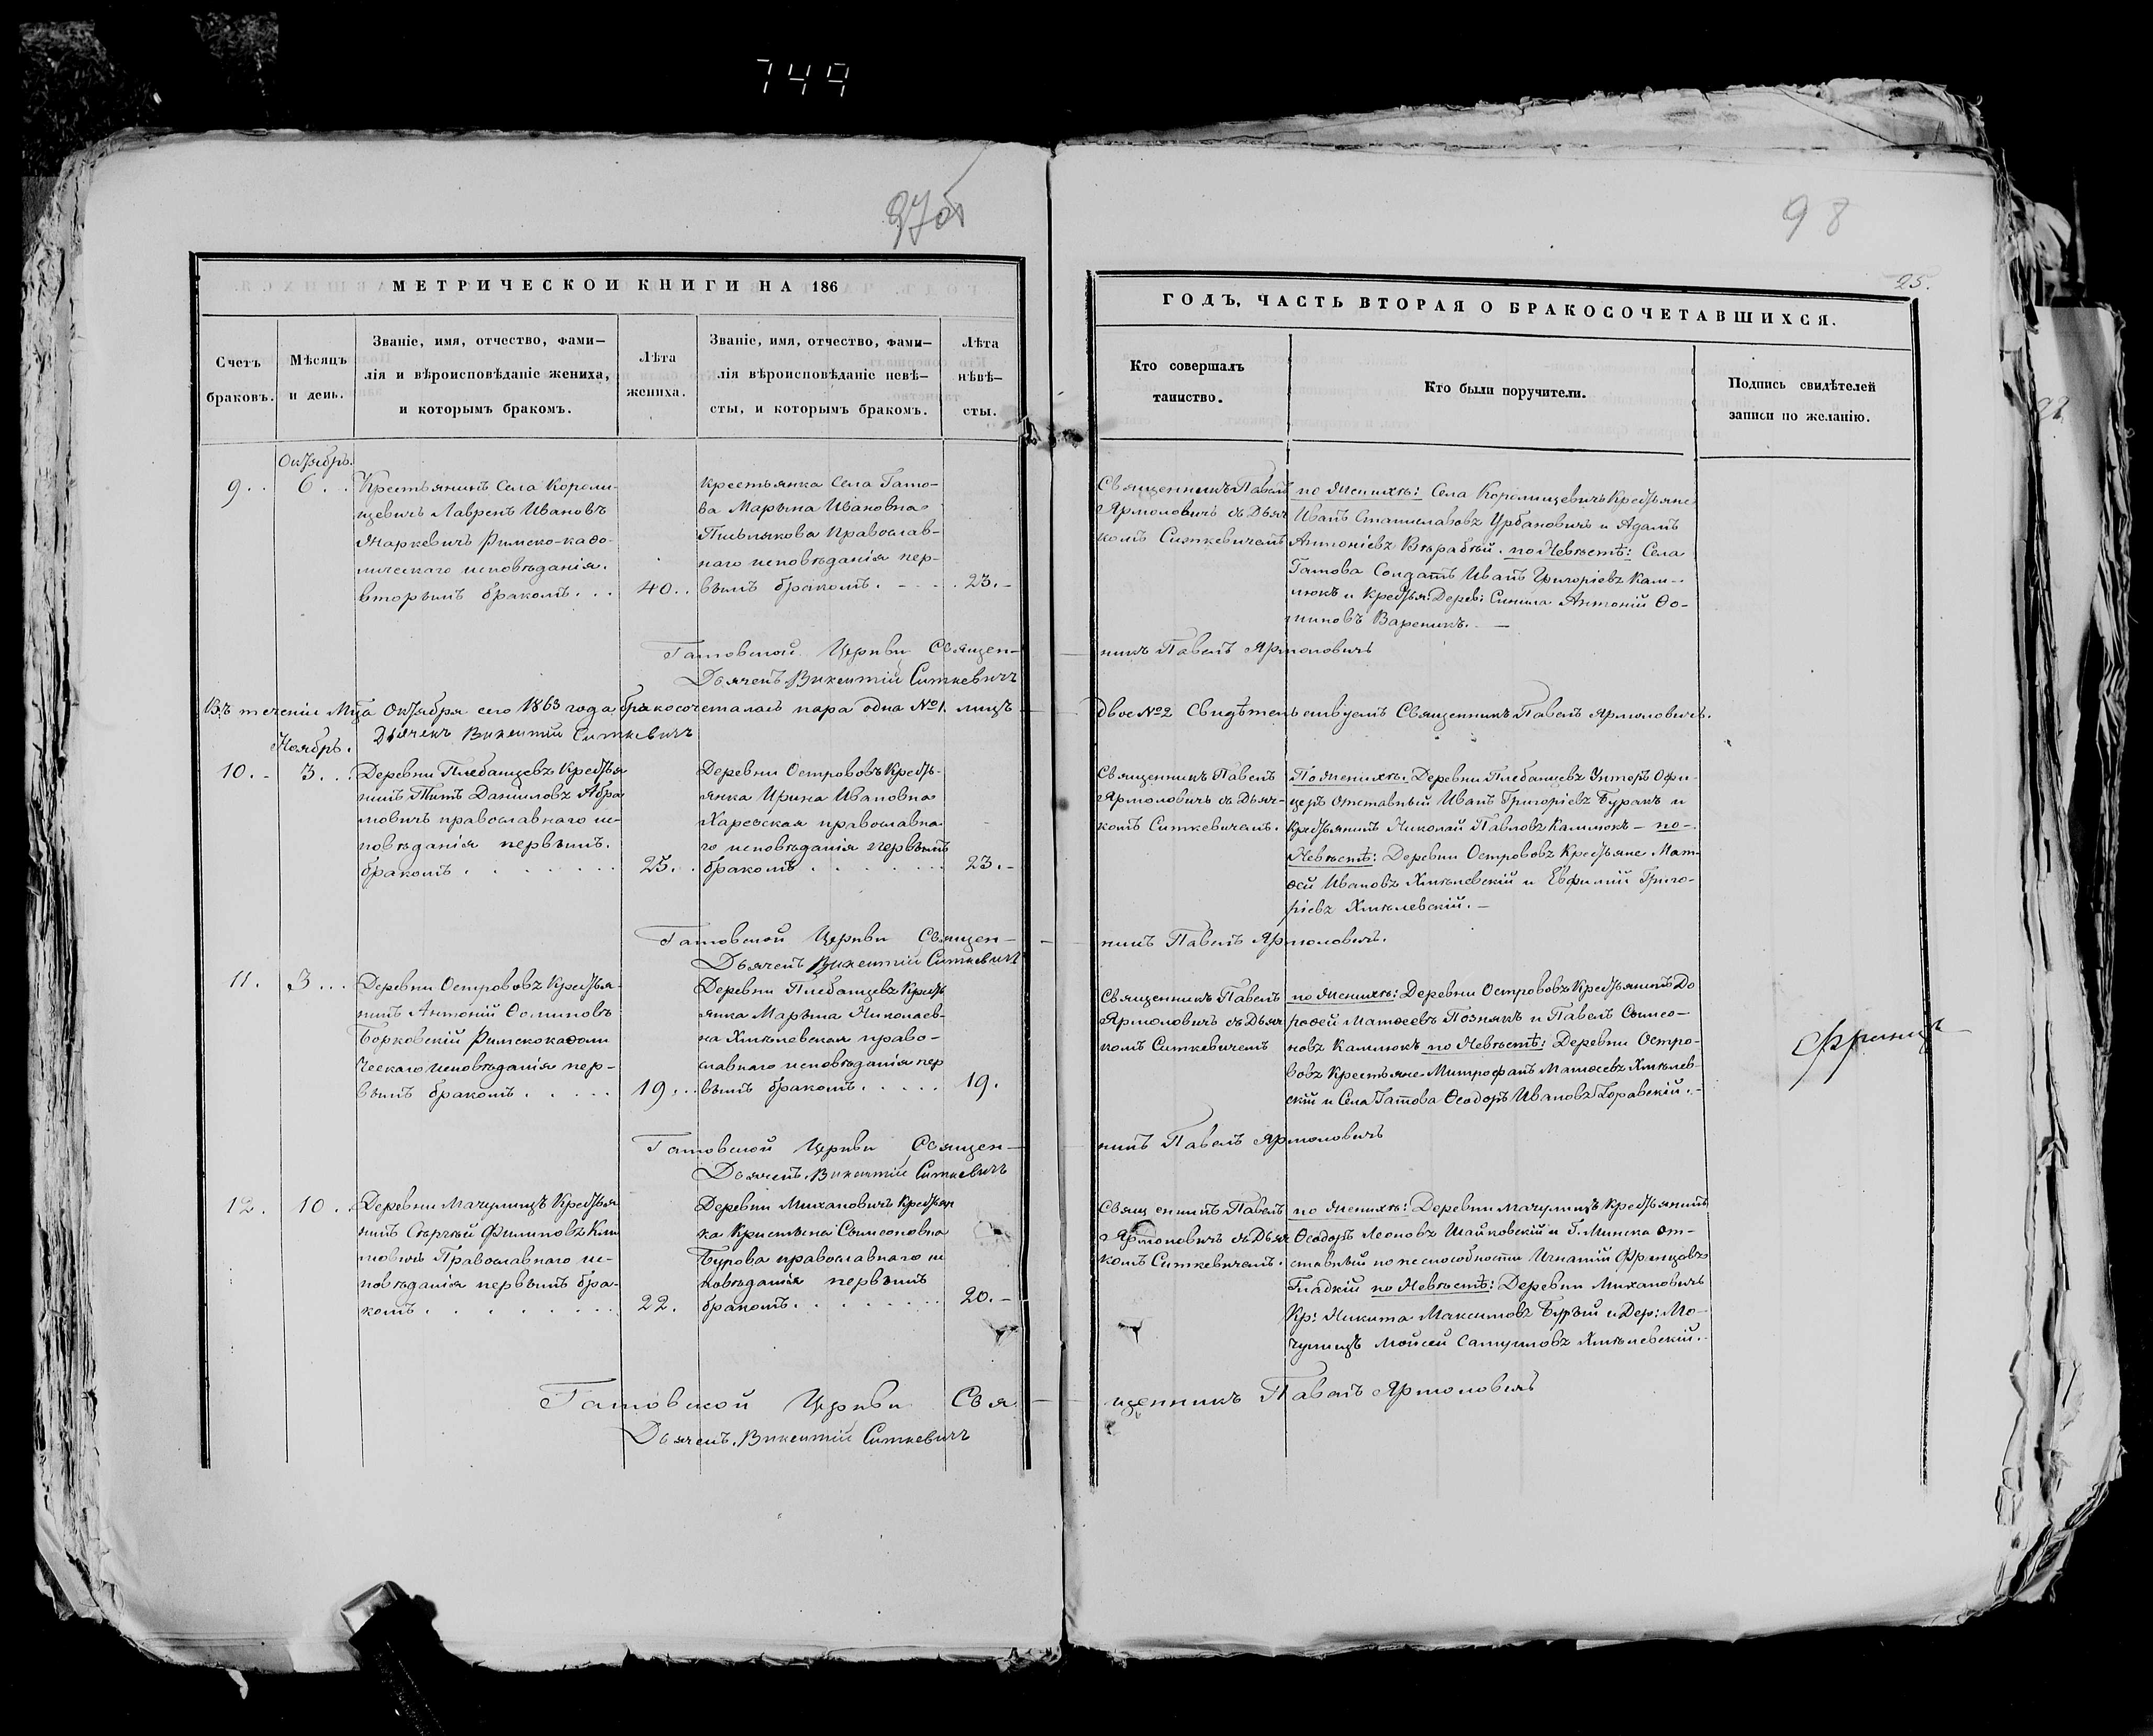 749
97об
98
25.
МЕТРИЧЕСКОИ КНИГИ НА 186
ГОДЪ, ЧАСТЬ ВТОРАЯ О БРАКОСОЧЕТАВШИХСЯ.
Счетъ браковъ.
Мѣсяцъ и день.
Званіе, имя, отчество, фами-
лія и вѣроисповѣданіе жениха,
и которымъ бракомъ.
Лѣта жениха.
Званіе, имя, отчество, фами-
лія вѣроисповѣданіе невѣ-
сты, и которымъ бракомъ.
Лѣта нѣвѣ-
сты.
Кто совершалъ таинство.
Кто были поручители.
Подпись свидѣтелей
записи по желанію.
Октябрь.
9.. 6..
Крестьянинъ Села Короли-
щевичъ Лаврень Ивановъ
Маркевичъ Римско-каѳо-
лическаго исповѣданія.
вторымъ бракомъ...
40..
Крестьянка Села Гато-
ва Марьяна Ивановна
православ-
наго исповѣданія пер-
вымъ бракомъ.
23.-
Священникъ Павелъ
Ярмоловичъ съ Дьяч
комъ Ситкевичемъ
по Женихѣ: Села Королищевичъ Крестьяне
Иванъ Станиславовъ Урбановичъ и Адамъ
Антоніевъ Вѣрабѣй. по Невѣстѣ: Села
Гатова Солдатъ Иванъ Григоріевъ Кам-
люкъ и Крестья: Дерев: Синила Антоній Ѳо-
миновъ Вареникъ.-
Гатовской Церкви Священ-
никъ Павелъ Ярмоловичъ
Дьячекъ Викентій Ситкевичъ
Въ теченіи Мца Октября сего 1863 года бракосочеталась пара одна №1. лицъ
двое №2 Свидѣтельствуетъ Священникъ Павелъ Ярмоловичъ.
Дьячекъ Викентій Ситкевичъ
Ноябрь.
10.- 3...
Деревни Плебанцевъ Крестья
нинъ Титъ Даниловъ Абра
мовичъ православнаго ис-
повѣданія первымъ.
бракомъ.......
25..
Деревни Острововъ Кресть-
янка Ирина Ивановна
Харевская православна
го исповѣданія первымъ
бракомъ.......
23.-
Священникъ Павелъ
Ярмоловичъ съ Дьяч-
комъ Ситкевичемъ.
По Женихѣ. Деревни Плебанцевъ Унтеръ Офи-
церъ отставный Иванъ Григоріевъ Буракъ и
Крестьянинъ Николай Павловъ Камлюкъ - по-
Невѣстѣ: Деревни Острововъ Крестьяне Мат-
ѳей Ивановъ Хмѣлевскій и Евфимій Григо-
ріевъ Хмѣлевскій.-
Гатовской Церкви Священ-
никъ Павелъ Ярмоловичъ.
Дьячекъ Викентій Ситкевичъ
11. 3...
Деревни Острововъ Крестья-
нинъ Антоній Ѳоминовъ
Борковскій Римскокаѳоли
ческаго исповѣданія пер-
вымъ бракомъ.....
19...
Деревни Плебанцевъ Кресть
янка Марьяна Николаев-
на Хмѣлевская право-
славнаго исповѣданія пер
вымъ бракомъ.....
19.
Священникъ Павелъ
Ярмоловичъ съ Дьяч
комъ Ситкевичемъ
по Женихѣ: Деревни Острововъ Крестьянинъ До
роѳей Матѳеевъ Познякъ и Павелъ Симео-
новъ Камлюкъ по Невѣстѣ: Деревни Остро-
вовъ Крестьяне Митрофанъ Матѳеевъ Хмѣлев-
скій и Села Гатова Ѳеодоръ Ивановъ
Гатовской Церкви Священ-
никъ Павелъ Ярмоловичъ
Дьячекъ Викентій Ситкевичъ
12. 10.
Деревни Мачулищъ Крестья
нинъ Сергѣй Филиповъ Кли
мовичъ Православнаго ис-
повѣданія первымъ бра-
комъ........
22.
Деревни Михановичъ Крестьян
ка Кристина Симеоновна
Бурова православнаго ис
повѣданія первымъ
бракомъ.......
20.-
Священникъ Павелъ
Ярмоловичъ съ Дьяч
комъ Ситкевичемъ.
по Женихѣ: Деревни Мачулищъ Крестьянинъ
Ѳеодоръ Леоновъ Шайковскій и Г. Минска от-
ставный по неспособности Игнатій Францовъ
Гладкій по Невѣстѣ: Деревни Михановичъ
Кр: Никита Максимовъ Бурый и Дер: Ма-
чулищъ Мойсей Самуиловъ Хмѣлевскій.
Гатовской Церкви Свя-
щенникъ Павелъ Ярмоловичъ
Дьячекъ Викентій Ситкевичъ